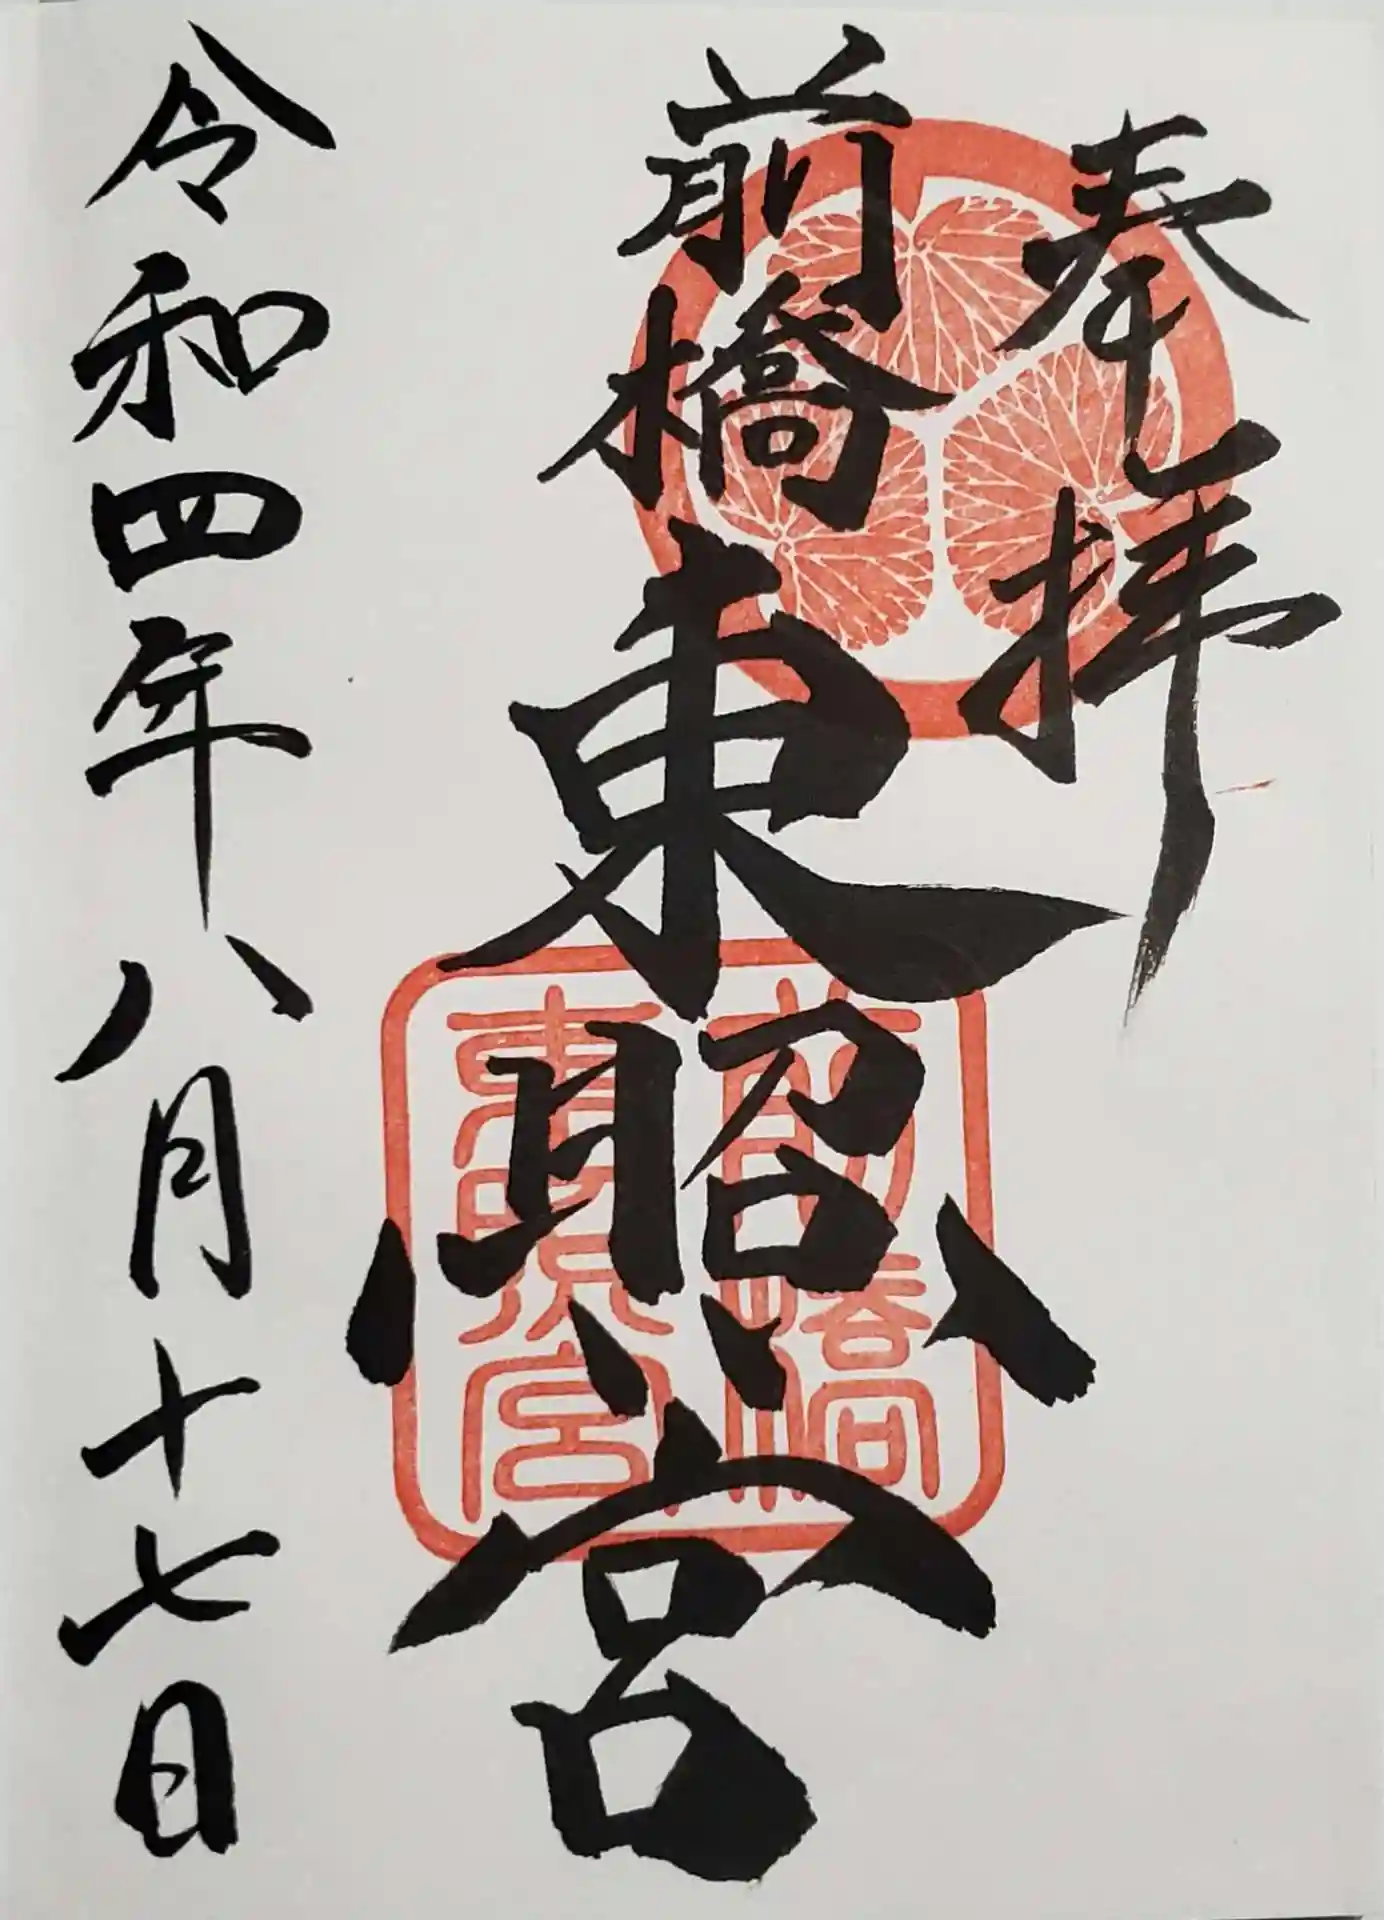 奉拝
前橋東照宮
令和四年八月十七日
前橋
東照宮